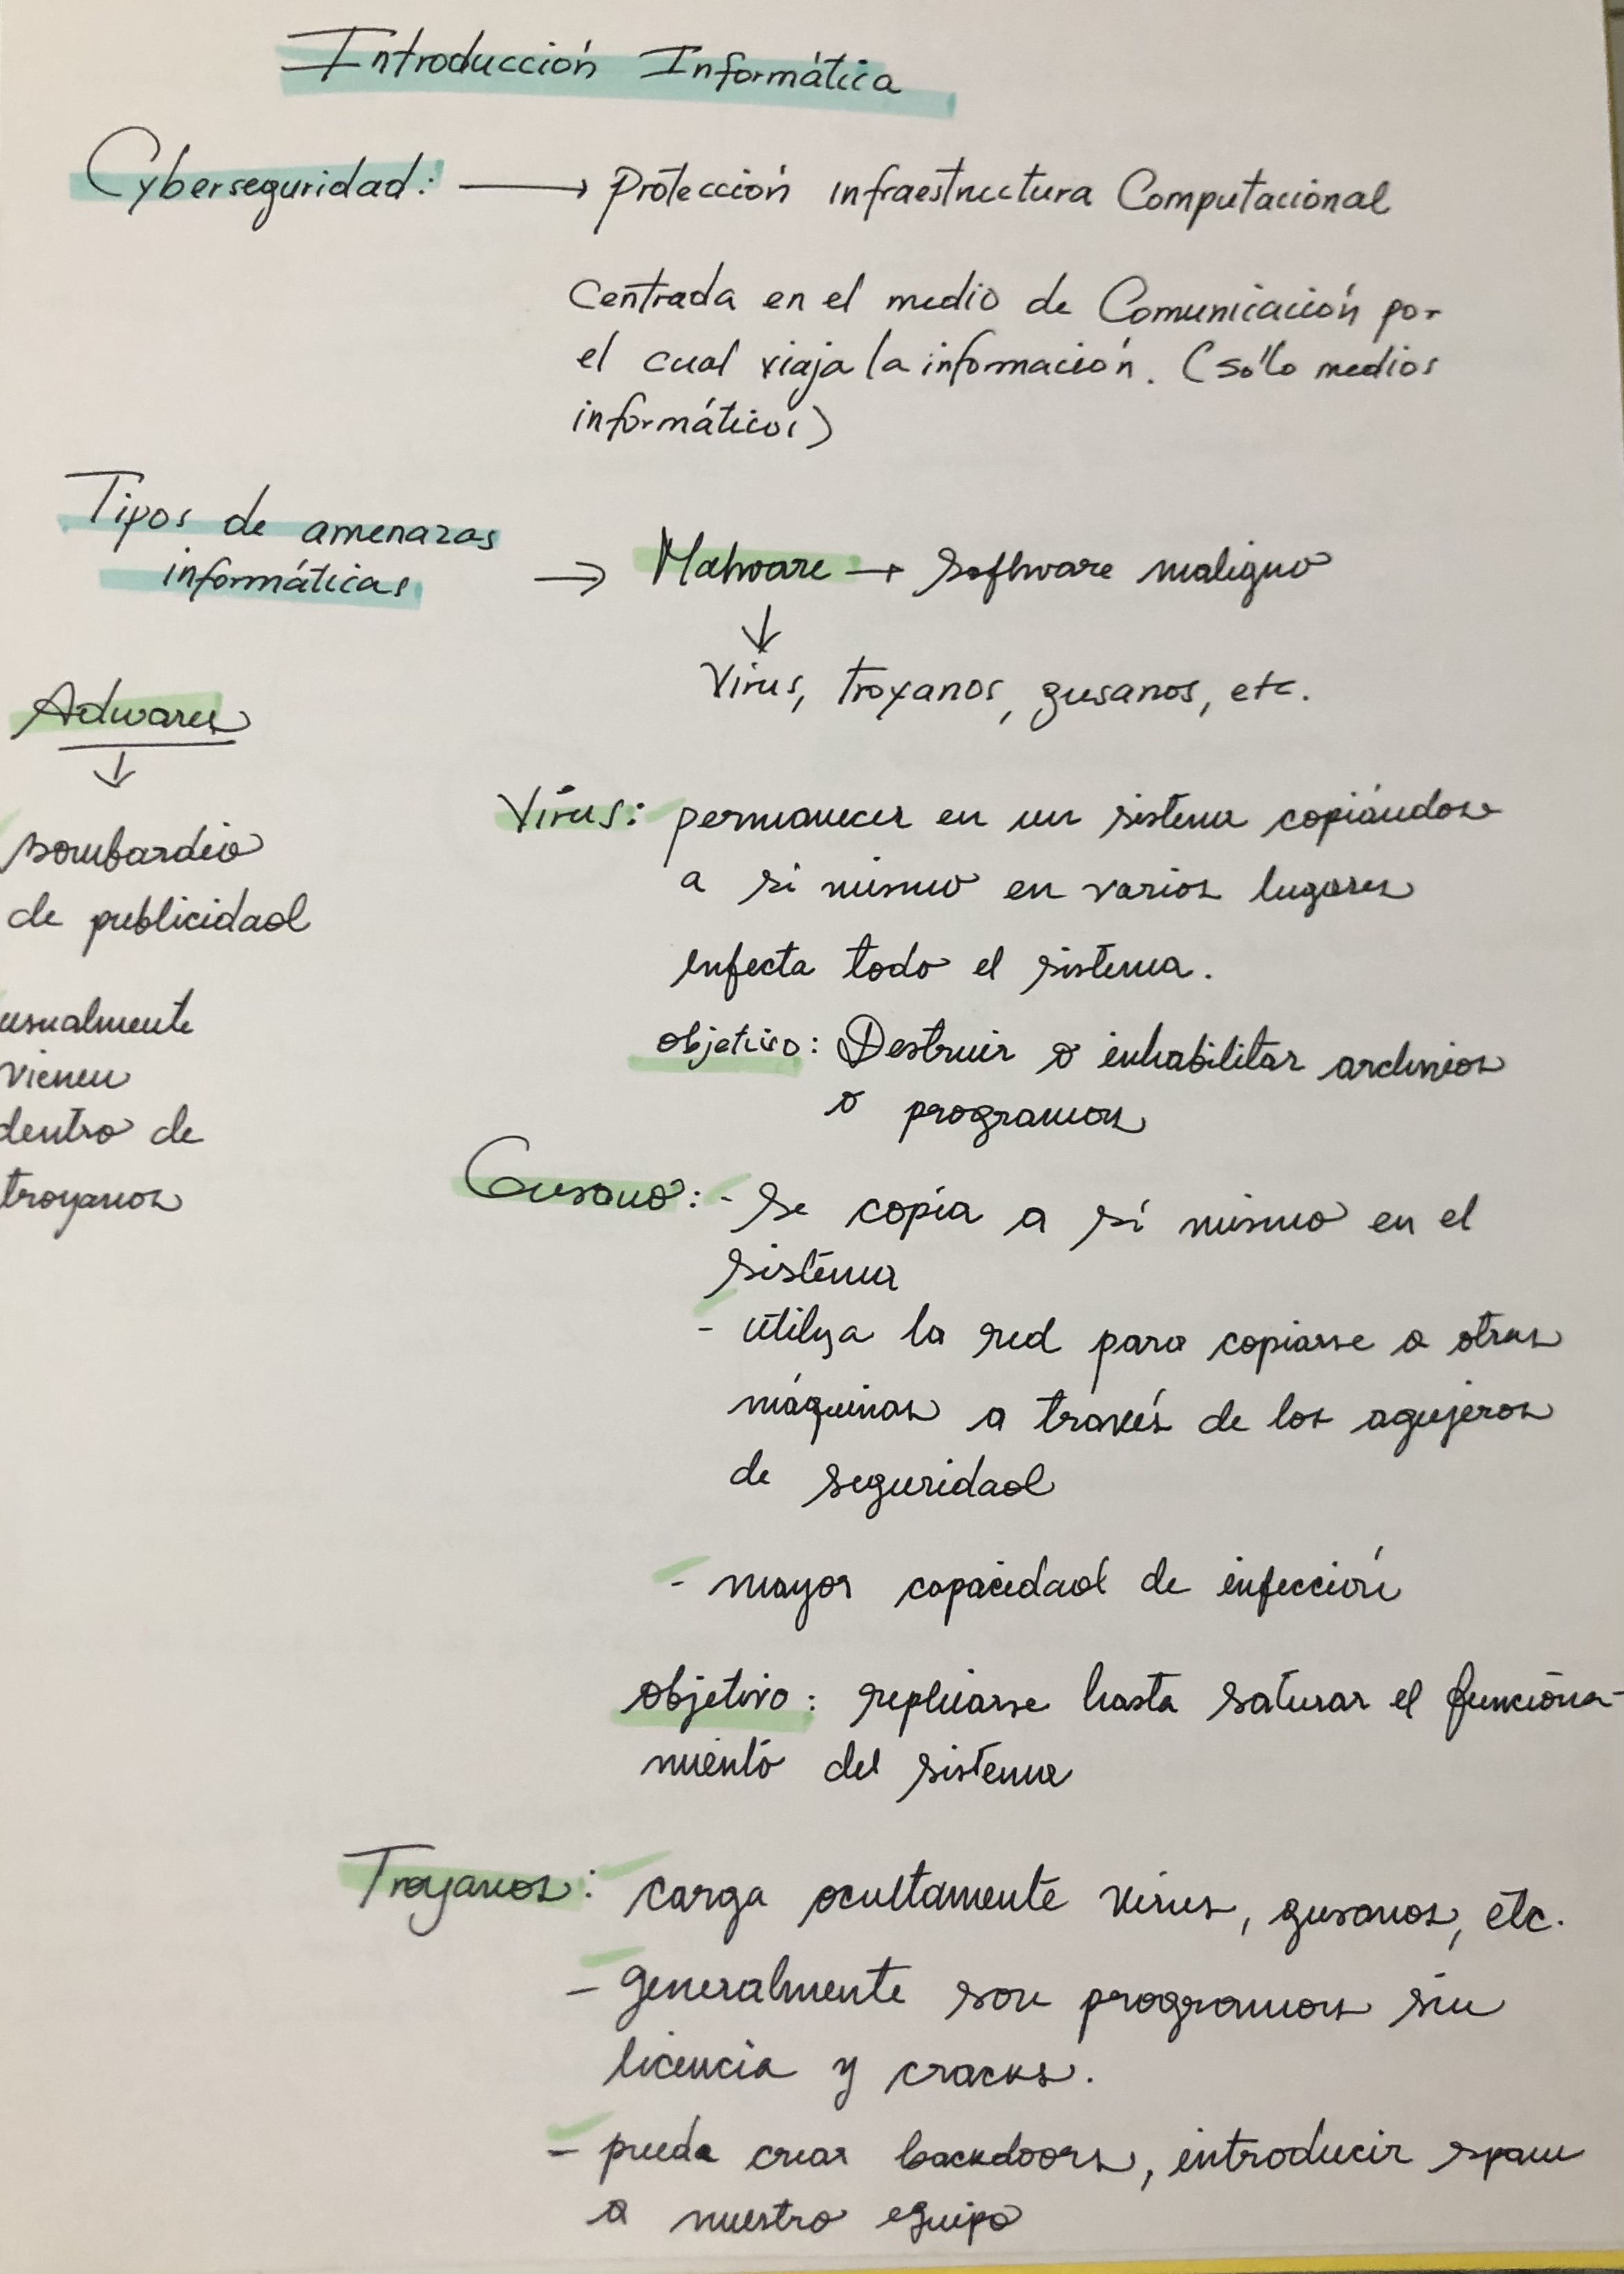 Introducción Informática
Cyberseguridad: → Protección infraestructura Computacional
Centrada en el medio de Comunicación por
el cual viaja la información. (sólo medios
informáticos)
Tipos de amenazas
informáticas → Malware → Software maligno
↓
Virus, troyanos, gusanos, etc.
Adwares
↓
bombardeo
de publicidad
usualmente
vienen
dentro de
troyanos
Virus: permanecer en un sistema copiándose
a si mismo en varios lugares
infecta todo el sistema.
objetivo: Destruir o inhabilitar archivos
o programas
Gusano: - Se copia a sí mismo en el
sistema
- utiliza la red para copiarse a otras
máquinas a través de los agujeros
de seguridad
- mayor capacidad de infección
objetivo: replicarse hasta saturar el funciona-
miento del sistema
Troyanos: carga ocultamente virus, gusanos, etc.
- generalmente son programas sin
licencia y cracks.
- puede crear backdoors, introducir spam
a nuestro equipo